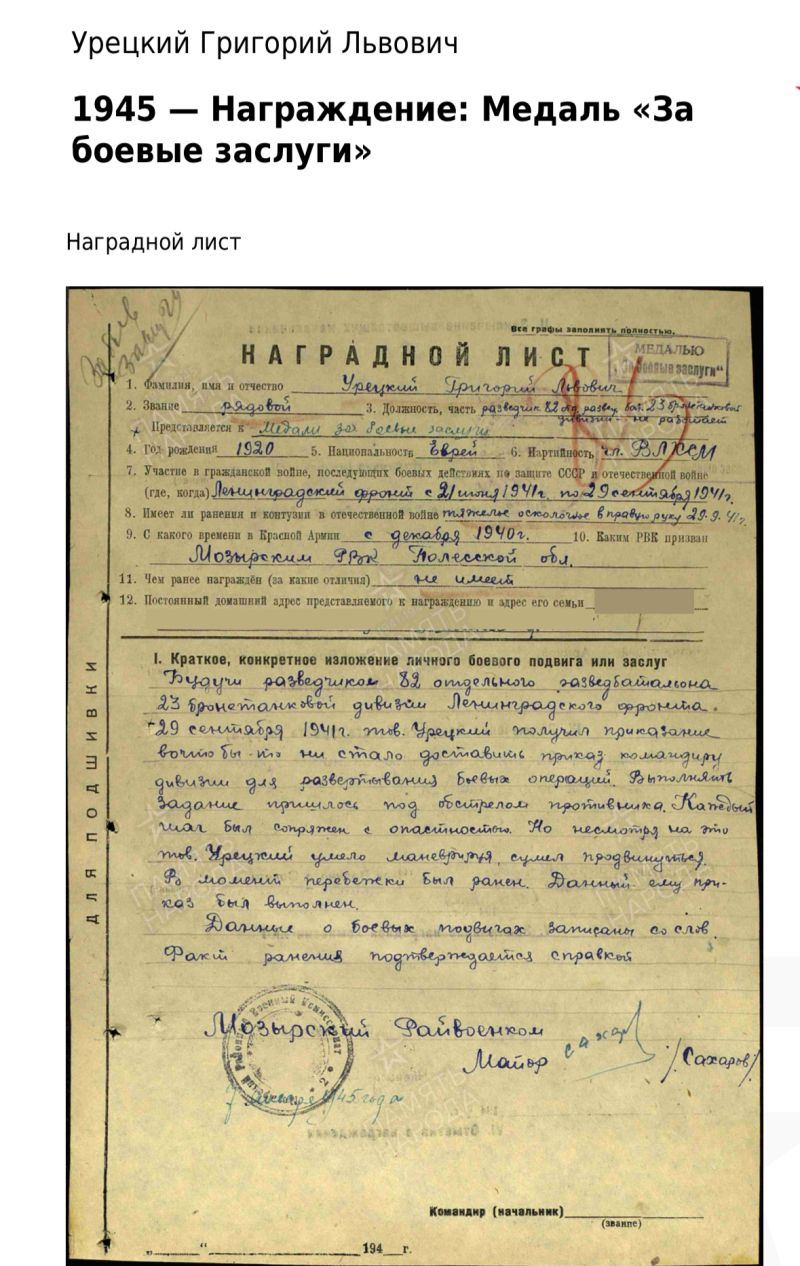 Урецкий Григорий Львович
1945 — Награждение: Медаль «За
боевые заслуги»
Наградной лист
Все графы заполнять полностью.
НАГРАДНОЙ ЛИСТ
МЕДАЛЬЮ
„За боевые заслуги“
1. Фамилия, имя и отчество Урецкий Григорий Львович
2. Звание рядовой 3. Должность, часть разведчик 82 отд. развед. бат. 23 бронетанковой
дивизии не работает
Представляется к Медали за боевые заслуги
4. Год рождения 1920 5. Национальность Еврей 6. Партийность чл. ВЛКСМ
7. Участие в гражданской войне, последующих боевых действиях по защите СССР и отечественной войне
(где, когда) Ленинградский фронт с 21 июня 1941г. по 29 сентября 1941г.
8. Имеет ли ранения и контузии в отечественной войне тяжелое осколочное в правую руку 29.9.41г.
9. С какого времени в Красной Армии с декабря 1940г. 10. Каким РВК призван
Мозырским РВК Полесской обл.
11. Чем ранее награждён (за какие отличия) не имеет
12. Постоянный домашний адрес представляемого к награждению и адрес его семьи
I. Краткое, конкретное изложение личного боевого подвига или заслуг
Будучи разведчиком 82 отдельного разведбатальона
23 бронетанковой дивизии Ленинградского фронта.
29 сентября 1941г. тов. Урецкий получил приказание
вочто бы-то ни стало доставить приказ командиру
дивизии для развертывания боевых операций. Выполнять
задание пришлось под обстрелом противника. Каждый
шаг был сопряжен с опастностью. Но несмотря на это
тов. Урецкий умело маневрируя, сумел продвинуться.
В момент перебежки был ранен. Данный ему при-
каз был выполнен.
Данные о боевых подвигах записаны со слов.
Факт ранения подтверждается справкой
Мозырский Райвоенком
Майор /Сахаров/
1945 года
Командир (начальник)
(звание)
„ “ 194 г.
ДЛЯ ПОДШИВКИ